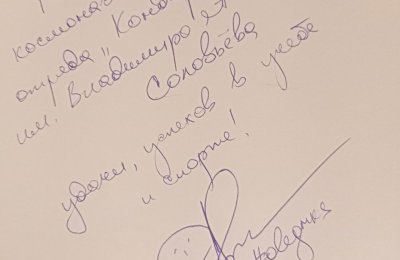 космонав
отряда "Кондор
им. Владимира
Соловьёва
удачи, успехов в учебе
и спорте!